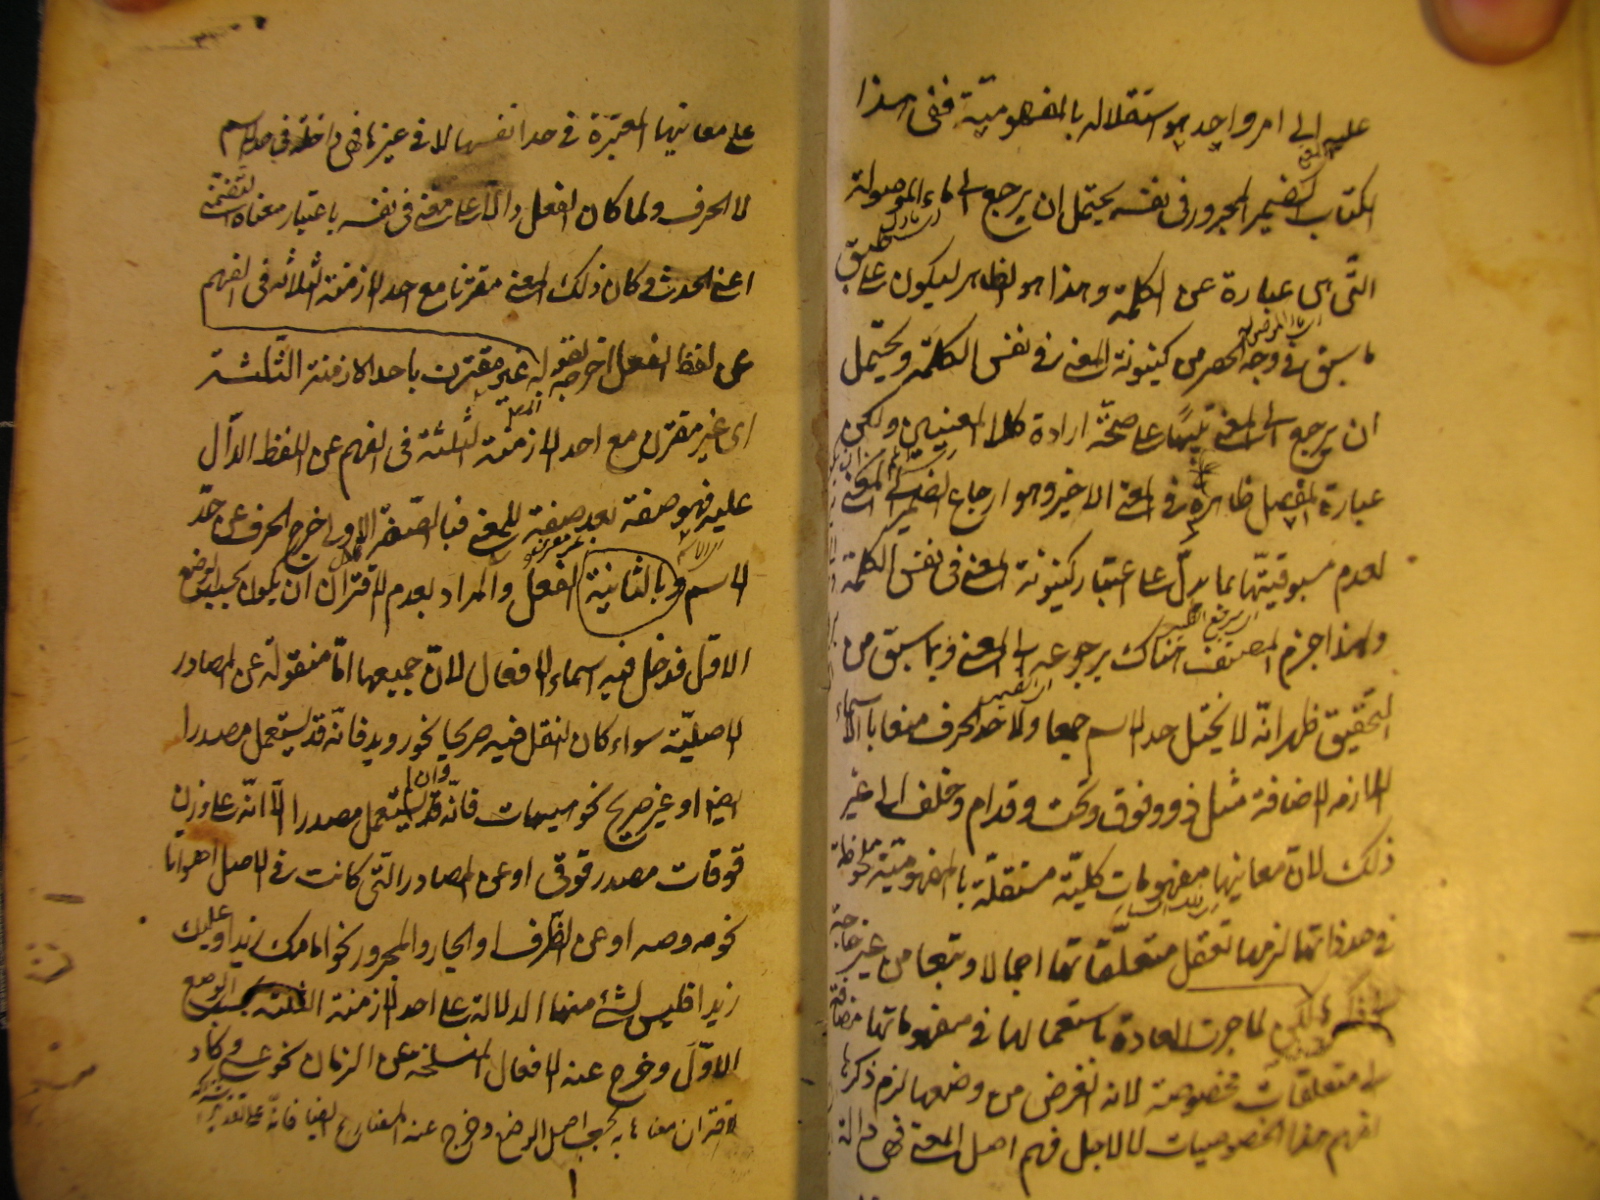 عليه الى امر واحد هو استقلاله بالمفهومية ففى هذا
الكتاب الضمير المجرور فى نفسه يحتمل ان يرجع الى ماء الموصولة
التى هى عبارة عن الكلمة وهذا هو الظاهر ليكون على طبق
ما سبق فى وجه الحصر من كينونة المعنى فى نفس الكلمة ويحتمل
ان يرجع الى المعنى تنبيها على صحة ارادة كلا المعنيين ولكن
عبارة المفصل ظاهرة فى المعنى الاخير وهو ارجاع الضمير الى المعنى
لعدم مسبوقيتها بما يدل على اعتبار كينونة المعنى فى نفس الكلمة
ولهذا جزم المصنف هناك برجوعه الى المعنى وبما سبق من
التحقيق ظهر انه لا يختل حد الاسم جمعا ولا حد الحرف منعا بالاسماء
اللازمة الاضافة مثل ذو وفوق وتحت وقدام وخلف الى غير
ذلك لان معانيها مفهومات كلية مستقلة بالمفهومية ملحوظة
فى حد ذاتها لزمها تعقل متعلقاتها اجمالا وتبعا من غير حاجة
الى ذكرها لكن لما جرت العادة باستعمالها فى مفهوماتها مضافة
الى متعلقات مخصوصة لانه الغرض من وضعها لزم ذكرها
لفهم هذه الخصوصيات لا لاجل فهم اصل المعنى فهى دالة
على معانيها المعتبرة فى حد انفسها لا فى غيرها فهى داخلة فى حد الاسم
لا الحرف ولما كان الفعل دالا على معنى فى نفسه باعتبار معناه التضمنى
اعنى الحدث وكان ذلك المعنى مقترنا مع احد الازمنة الثلاثة فى الفهم
عن لفظ الفعل اخرجه بقوله غير مقترن باحد الازمنة الثلثة
اى غير مقترن مع احد الازمنة الثلثة فى الفهم عن اللفظ الدال
عليه فهو صفة بعد صفة للمعنى فبالصفة الاولى اخرج الحرف عن حد
الاسم وبالثانية الفعل والمراد بعدم الاقتران ان يكون بحسب الوضع
الاول فدخل فيه اسماء الافعال لان جميعها اما منقولة عن المصادر
الاصلية سواء كان النقل فيه صريحا نحو رويد فانه قد يستعمل مصدرا
ايضا او غير صريح نحو هيهات فانه وان لم يستعمل مصدرا الا انه على وزن
قوقات مصدر قوقى او عن المصادر التى كانت فى الاصل اصواتا
نحو مه وصه او عن الظرف او الجار والمجرور نحو امامك زيدا وعليك
زيدا فليس لشئ منها الدلالة على احد الازمنة الثلثة بحسب الوضع
الاول وخرج عنه الافعال المنسلخة عن الزمان نحو عسى وكاد
لاقتران معناها به بحسب اصل الوضع وخرج عنه المضارع ايضا فانه على تقدير